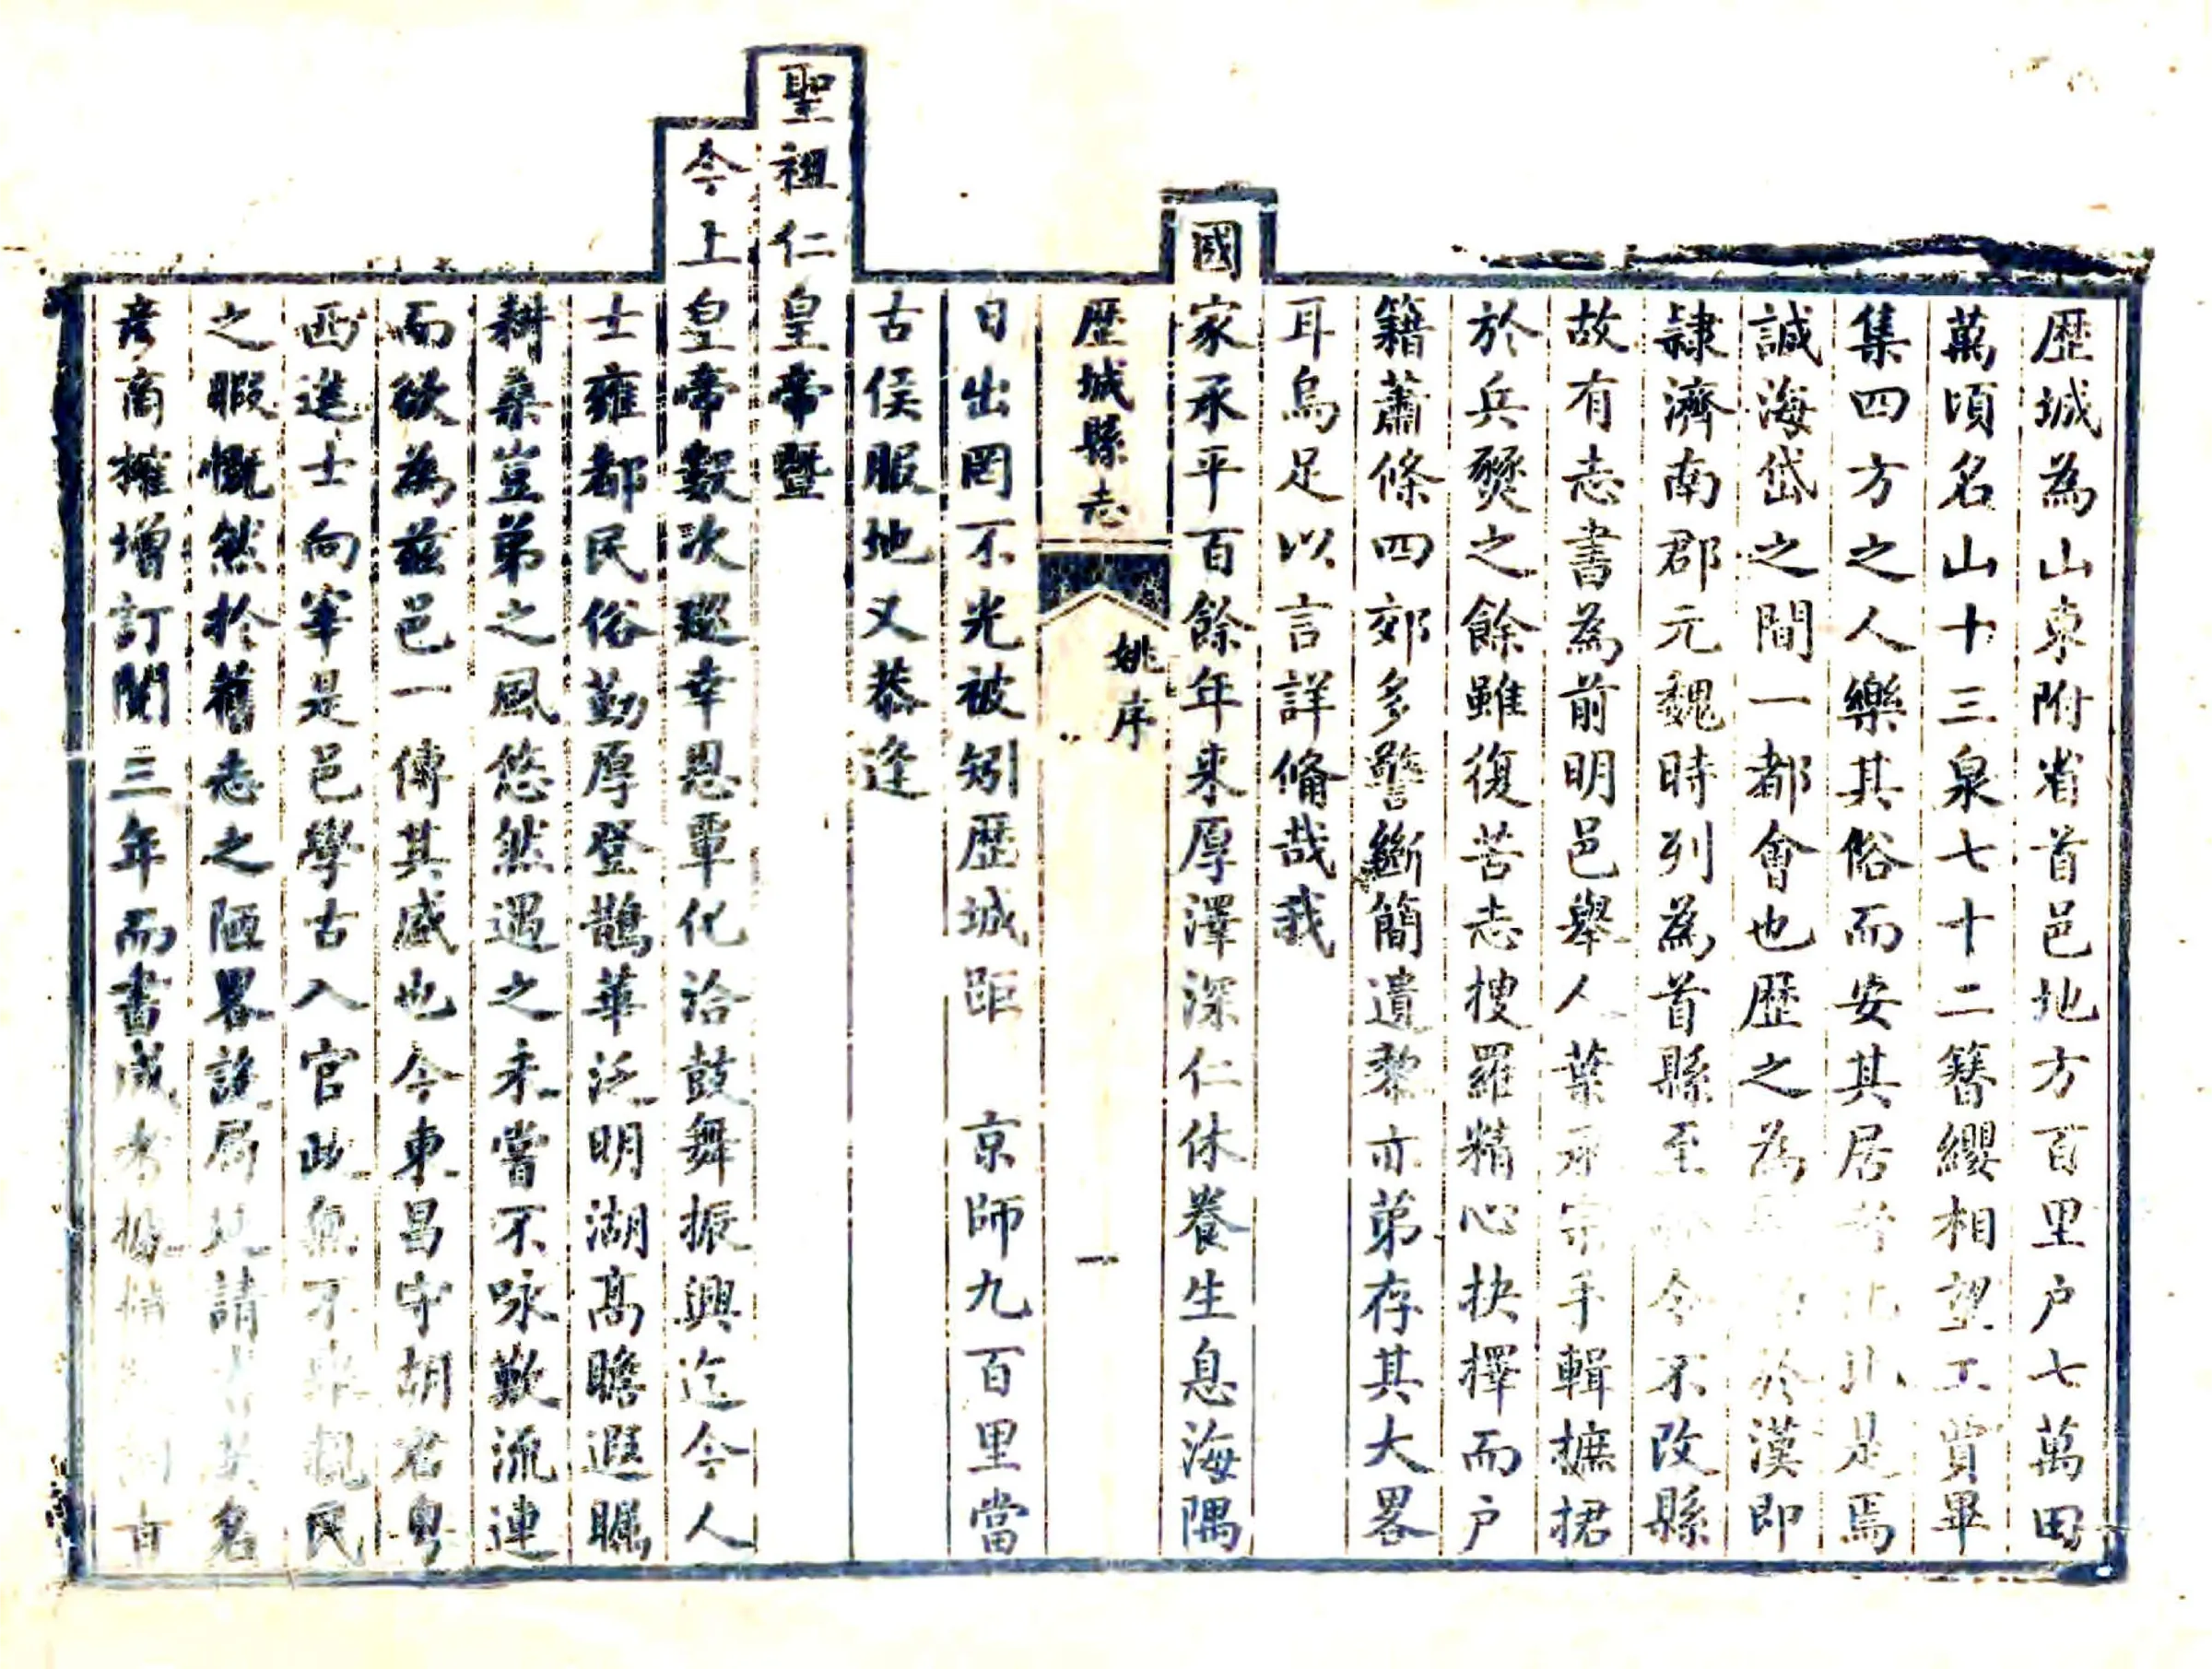 歴城為山東附省首邑地方百里户七萬田
萬頃名山十三泉七十二簪纓相望工賈畢
集四方之人樂其俗而安其居 是焉
誠海岱之間一都會也歴之為 於漢即
隷濟南郡元魏時列為首縣至 今不改縣
故有志書為前明邑舉人葉承宗手輯摭捃
於兵燹之餘雖復苦志搜羅精心抉擇而户
籍蕭條四郊多警斷簡遺黎亦弟存其大畧
耳烏足以言詳俻哉我
國家承平百餘年来厚澤深仁休養生息海隅
歴城縣志
姚序
一
日出罔不光被矧歴城距 京師九百里當
古侯服地又恭逢
聖祖仁皇帝暨
今上皇帝數次廵幸恩覃化洽鼓舞振興迄今人
士雍都民俗勤厚登鵲華泛明湖髙瞻遐矚
耕桑豈弟之風悠然遇之未嘗不咏歎流連
而欲為兹邑一傳其盛也今東昌守胡君粤
西進士向宰是邑學古入官政 不 親民
之暇慨然於舊志之陋畧設局 請 名
彦商摧增訂閲三年而書成考據 有